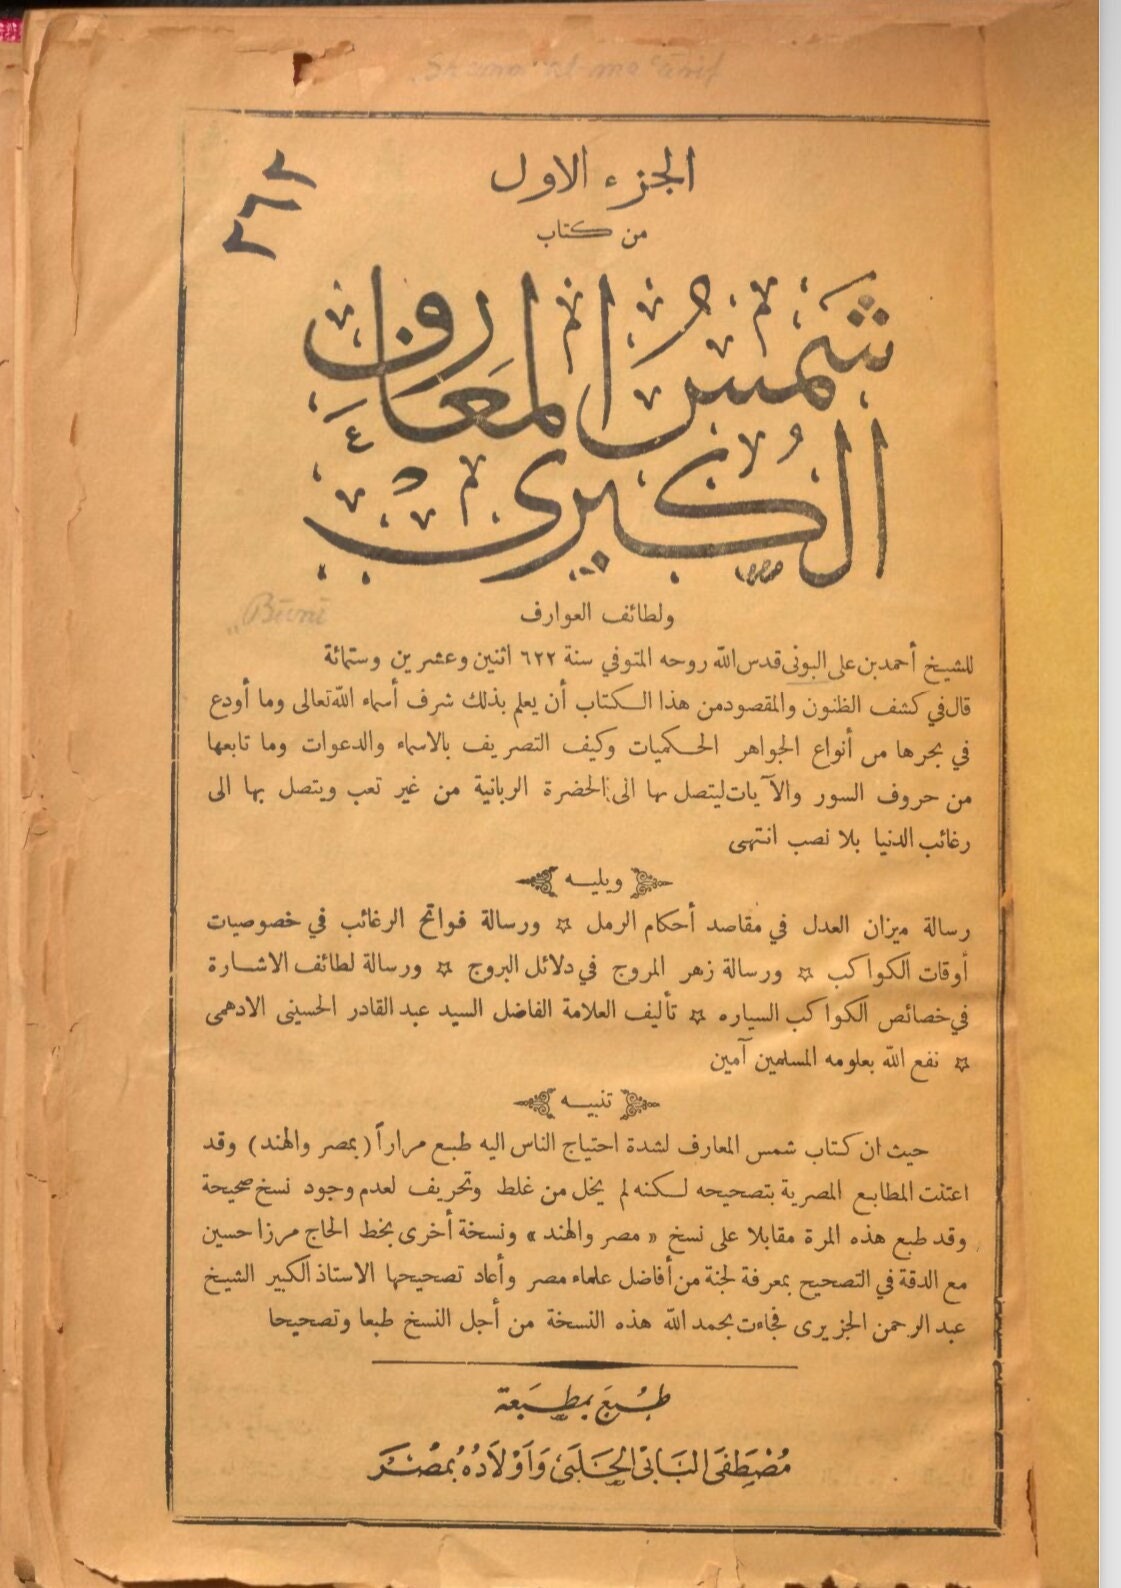 الجزء الاول
٣٦٢
من كتاب
شَمْسُ المَعَارِف
الكُبْرى
ولطائف العوارف
Būnī
للشيخ أحمد بن على البونى قدس الله روحه المتوفي سنة ٦٢٢ اثنين وعشرين وستمائة
قال في كشف الظنون والمقصود من هذا الكتاب أن يعلم بذلك شرف أسماء الله تعالى وما أودع
في بحرها من أنواع الجواهر الحكميات وكيف التصريف بالاسماء والدعوات وما تابعها
من حروف السور والآيات ليتصل بها الى الحضرة الربانية من غير تعب ويتصل بها الى
رغائب الدنيا بلا نصب انتهى
ويليه
رسالة ميزان العدل في مقاصد أحكام الرمل ☆ ورسالة فواتح الرغائب في خصوصيات
أوقات الكواكب ☆ ورسالة زهر المروج في دلائل البروج ☆ ورسالة لطائف الاشارة
في خصائص الكواكب السياره ☆ تأليف العلامة الفاضل السيد عبد القادر الحسينى الادهمى
☆ نفع الله بعلومه المسلمين آمين
تنبيه
حيث ان كتاب شمس المعارف لشدة احتياج الناس اليه طبع مراراً (بمصر والهند) وقد
اعتنت المطابع المصرية بتصحيحه لكنه لم يخل من غلط وتحريف لعدم وجود نسخ صحيحة
وقد طبع هذه المرة مقابلا على نسخ « مصر والهند » ونسخة أخرى بخط الحاج مرزا حسين
مع الدقة في التصحيح بمعرفة لجنة من أفاضل علماء مصر وأعاد تصحيحها الاستاذ الكبير الشيخ
عبد الرحمن الجزيرى فجاءت بحمد الله هذه النسخة من أجل النسخ طبعا وتصحيحا
طُبِعَ بمَطبَعة
مُصْطَفَى البَابى الحَلَبى وَأَوْلَادُهُ بمِصْر